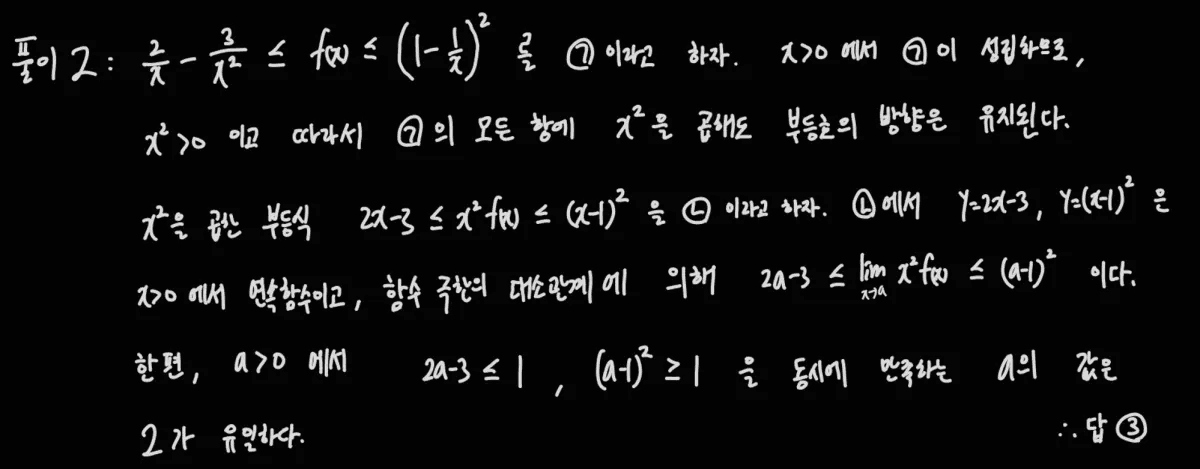 풀이 2: 2/x - 3/x² ≤ f(x) ≤ (1 - 1/x)² 를 ㉠이라고 하자. x>0 에서 ㉠이 성립하므로,
x²>0 이고 따라서 ㉠의 모든 항에 x²을 곱해도 부등호의 방향은 유지된다.
x²을 곱한 부등식 2x-3 ≤ x²f(x) ≤ (x-1)² 을 ㉡ 이라고 하자. ㉡에서 y=2x-3, y=(x-1)² 은
x>0 에서 연속함수이고, 함수 극한의 대소관계에 의해 2a-3 ≤ lim x→a x²f(x) ≤ (a-1)² 이다.
한편, a>0 에서 2a-3 ≤ 1, (a-1)² ≥ 1 을 동시에 만족하는 a의 값은
2가 유일하다. ∴ 답 ③